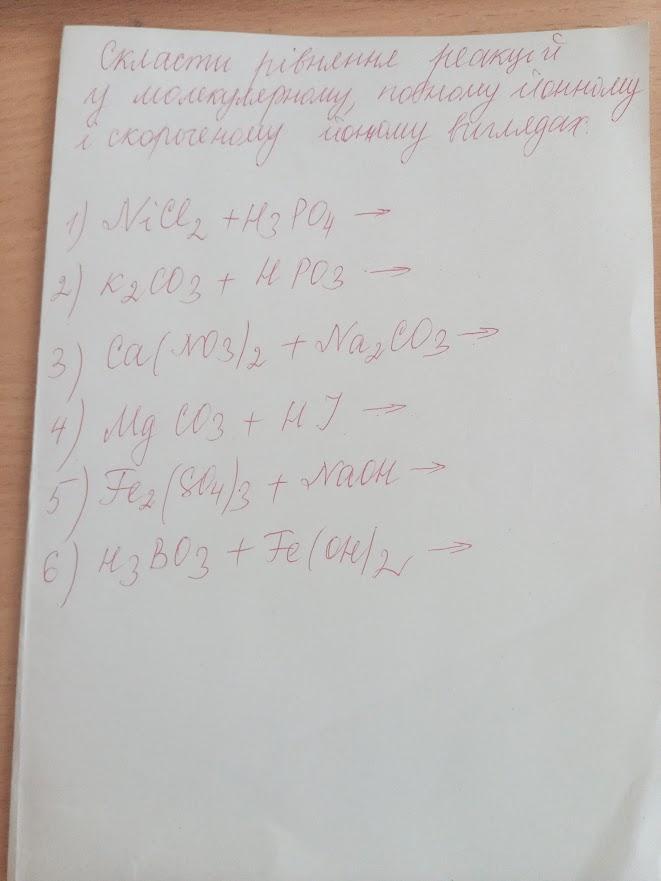 Скласти рівняння реакцій
у молекулярному, повному йонному
і скороченому йоному виглядах.
1) NiCl₂ + H₃PO₄ →
2) K₂CO₃ + HPO₃ →
3) Ca(NO₃)₂ + Na₂CO₃ →
4) MgCO₃ + HJ →
5) Fe₂(SO₄)₃ + NaOH →
6) H₃BO₃ + Fe(OH)₂ →